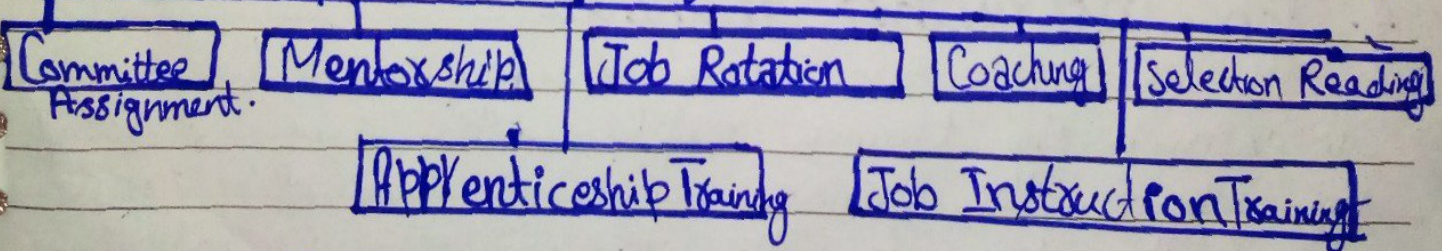 Committee Assignment.
Mentorship
Job Rotation
Coaching
Selection Reading
Apprenticeship Training
Job Instruction Training